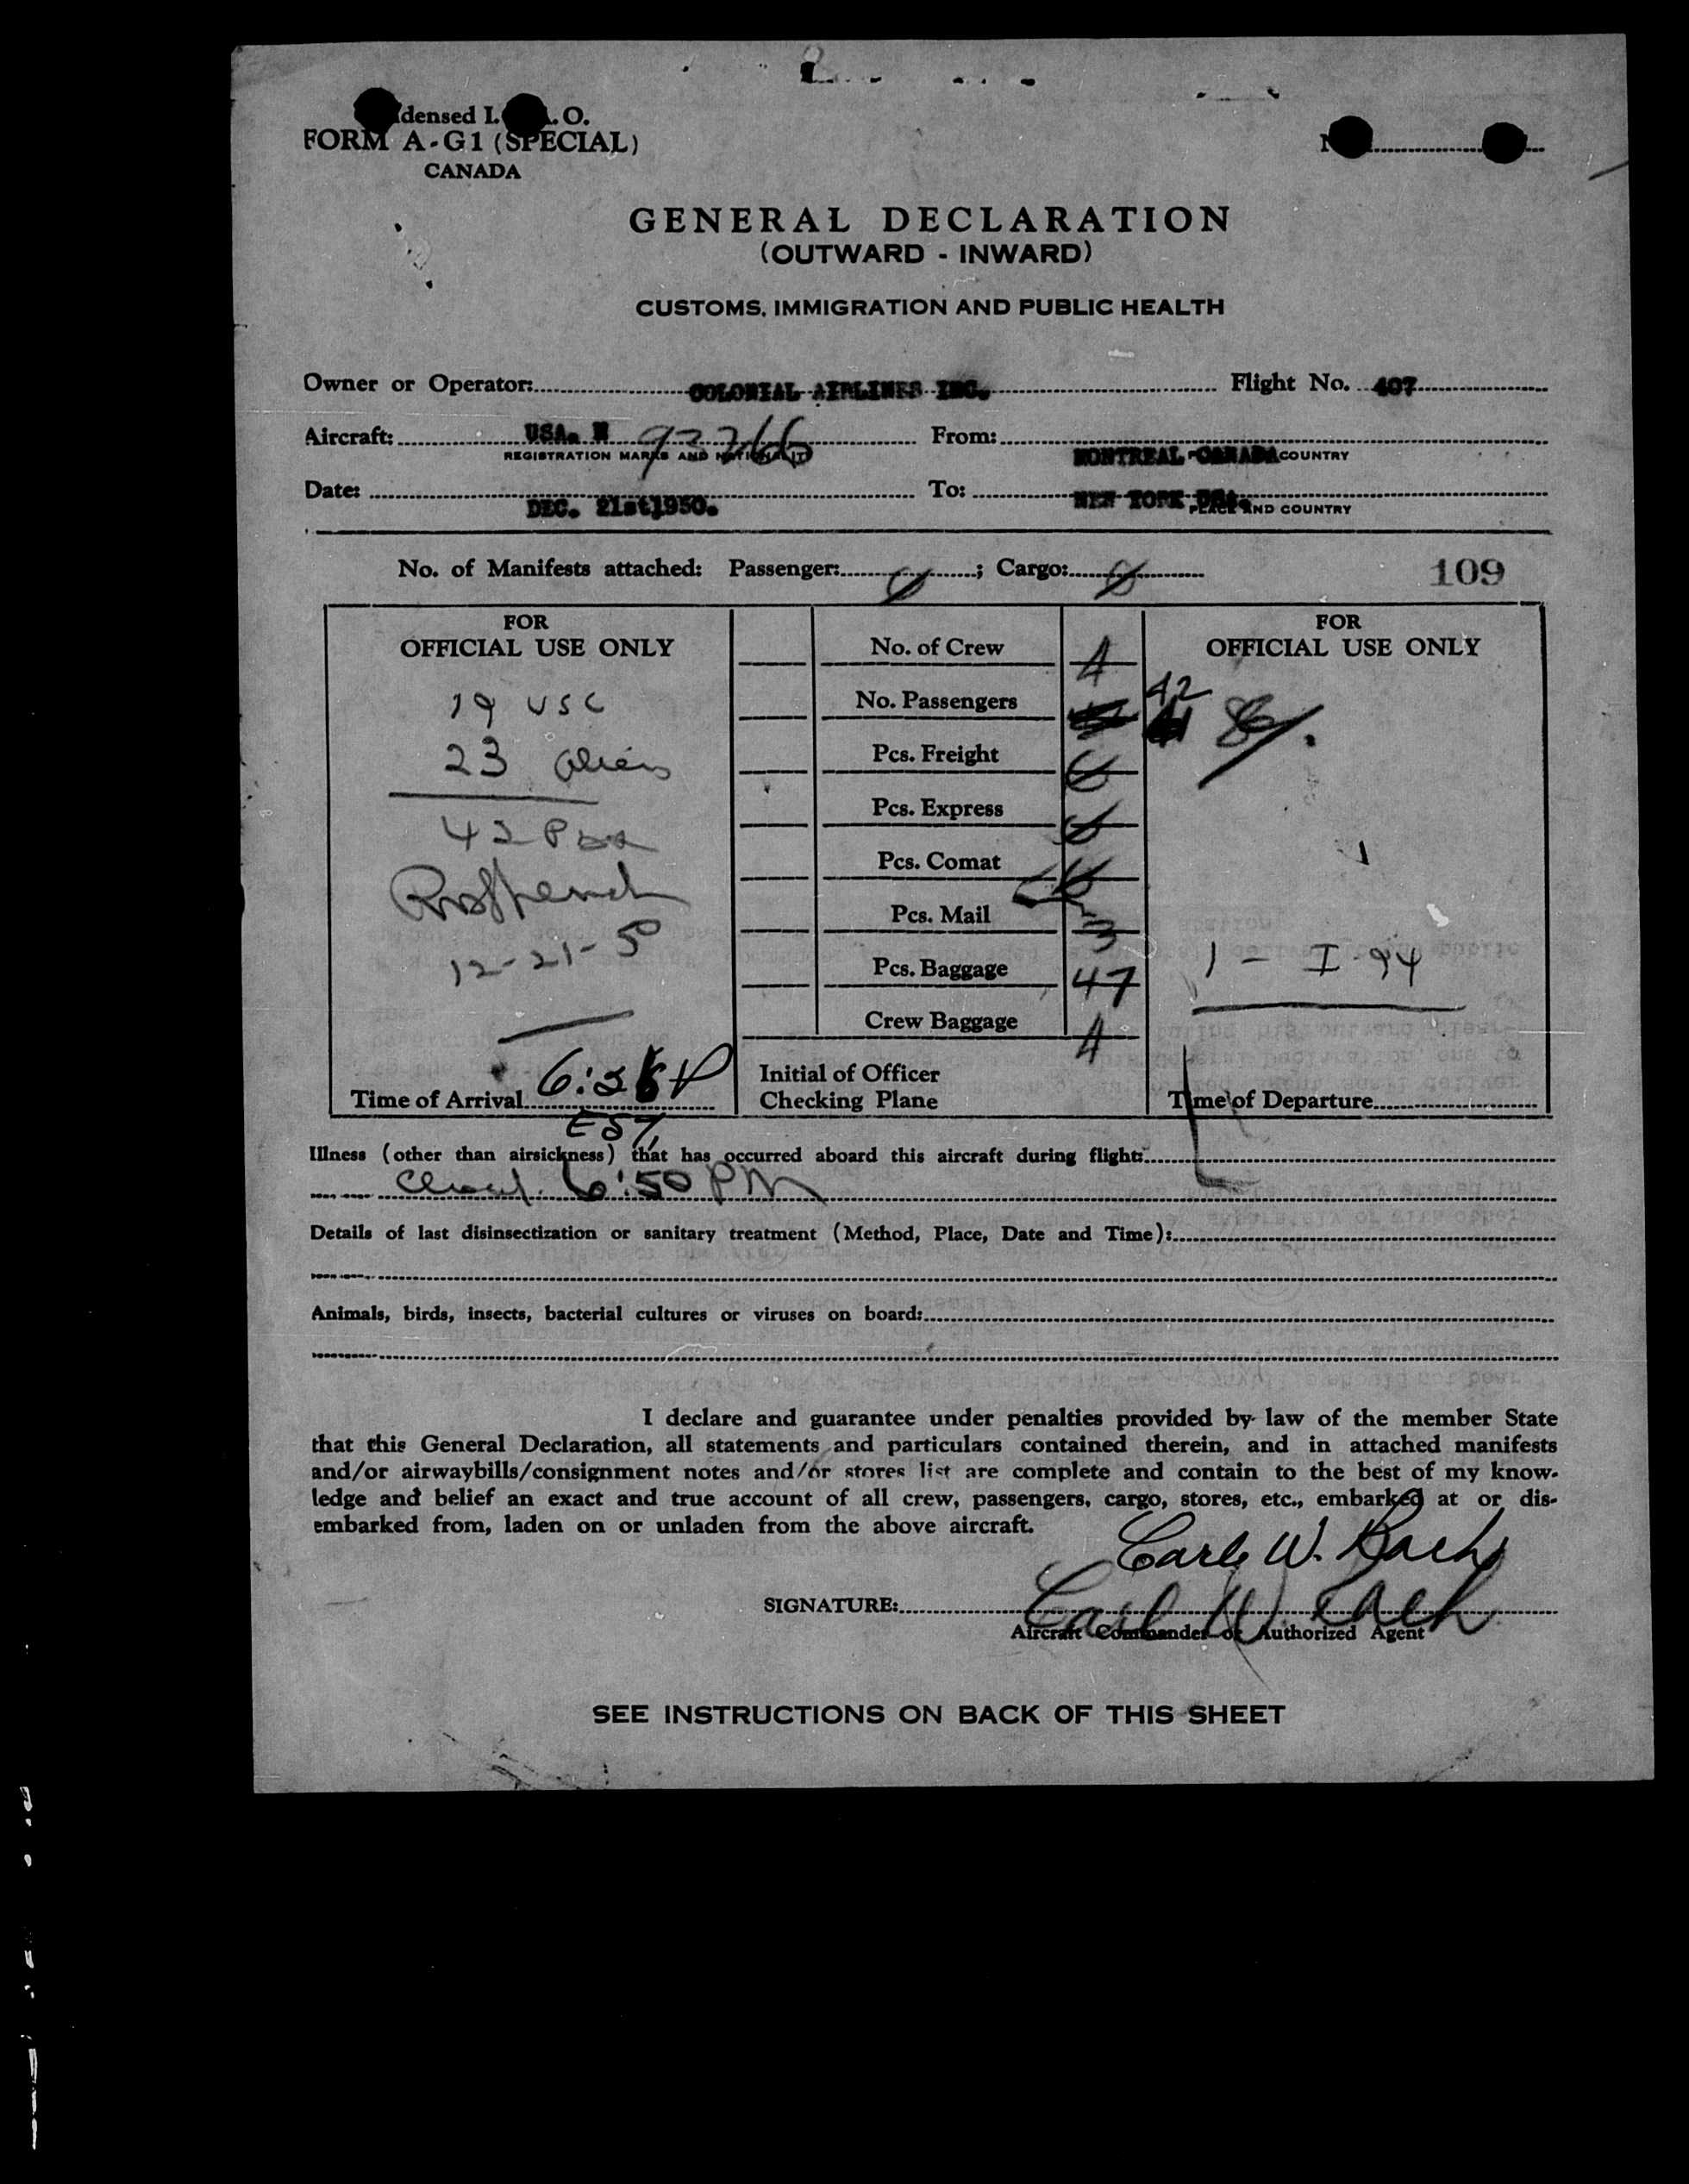 densed I. .O.
FORM A-G1 (SPECIAL)
CANADA
GENERAL DECLARATION
(OUTWARD - INWARD)
CUSTOMS, IMMIGRATION AND PUBLIC HEALTH
Owner or Operator: COLONIAL AIRLINES INC. Flight No. 407
Aircraft: USA. N From:
REGISTRATION MARKS AND NATIONALITY MONTREAL CANADA COUNTRY
Date: DEC. 21st1950. To: NEW YORK USA.
PLACE AND COUNTRY
No. of Manifests attached: Passenger: 0; Cargo: 0 109
FOR
OFFICIAL USE ONLY
19 USC
23 aliens
42 Pax
12-21-50
Time of Arrival 6:28 P
EST
No. of Crew 4
No. Passengers 42
Pcs. Freight 0
Pcs. Express 0
Pcs. Comat
Pcs. Mail 3
Pcs. Baggage 47
Crew Baggage 4
Initial of Officer
Checking Plane
FOR
OFFICIAL USE ONLY
1 - I-94
Time of Departure
Illness (other than airsickness) that has occurred aboard this aircraft during flight:
6:50 PM
Details of last disinsectization or sanitary treatment (Method, Place, Date and Time):
Animals, birds, insects, bacterial cultures or viruses on board:
I declare and guarantee under penalties provided by law of the member State
that this General Declaration, all statements and particulars contained therein, and in attached manifests
and/or airwaybills/consignment notes and/or stores list are complete and contain to the best of my know-
ledge and belief an exact and true account of all crew, passengers, cargo, stores, etc., embarked at or dis-
embarked from, laden on or unladen from the above aircraft.
Carl W. Bach
SIGNATURE: Carl W. Bach
Aircraft Commander or Authorized Agent
SEE INSTRUCTIONS ON BACK OF THIS SHEET